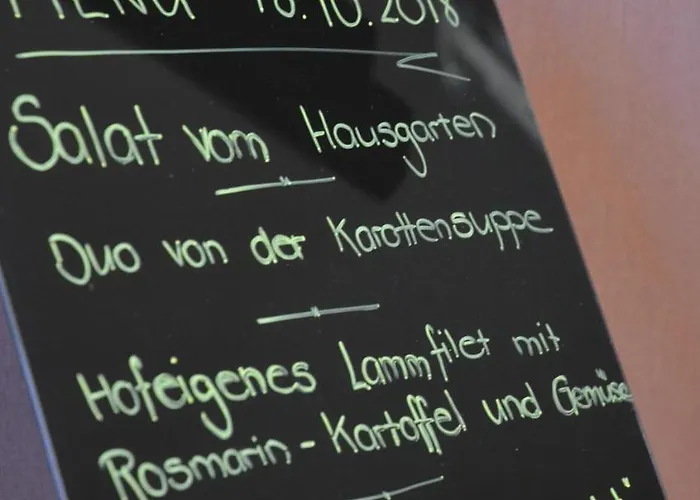 MENU 18.10.2018
Salat vom Hausgarten
Duo von der Karottensuppe
Hofeigenes Lammfilet mit
Rosmarin-Kartoffel und Gemüse